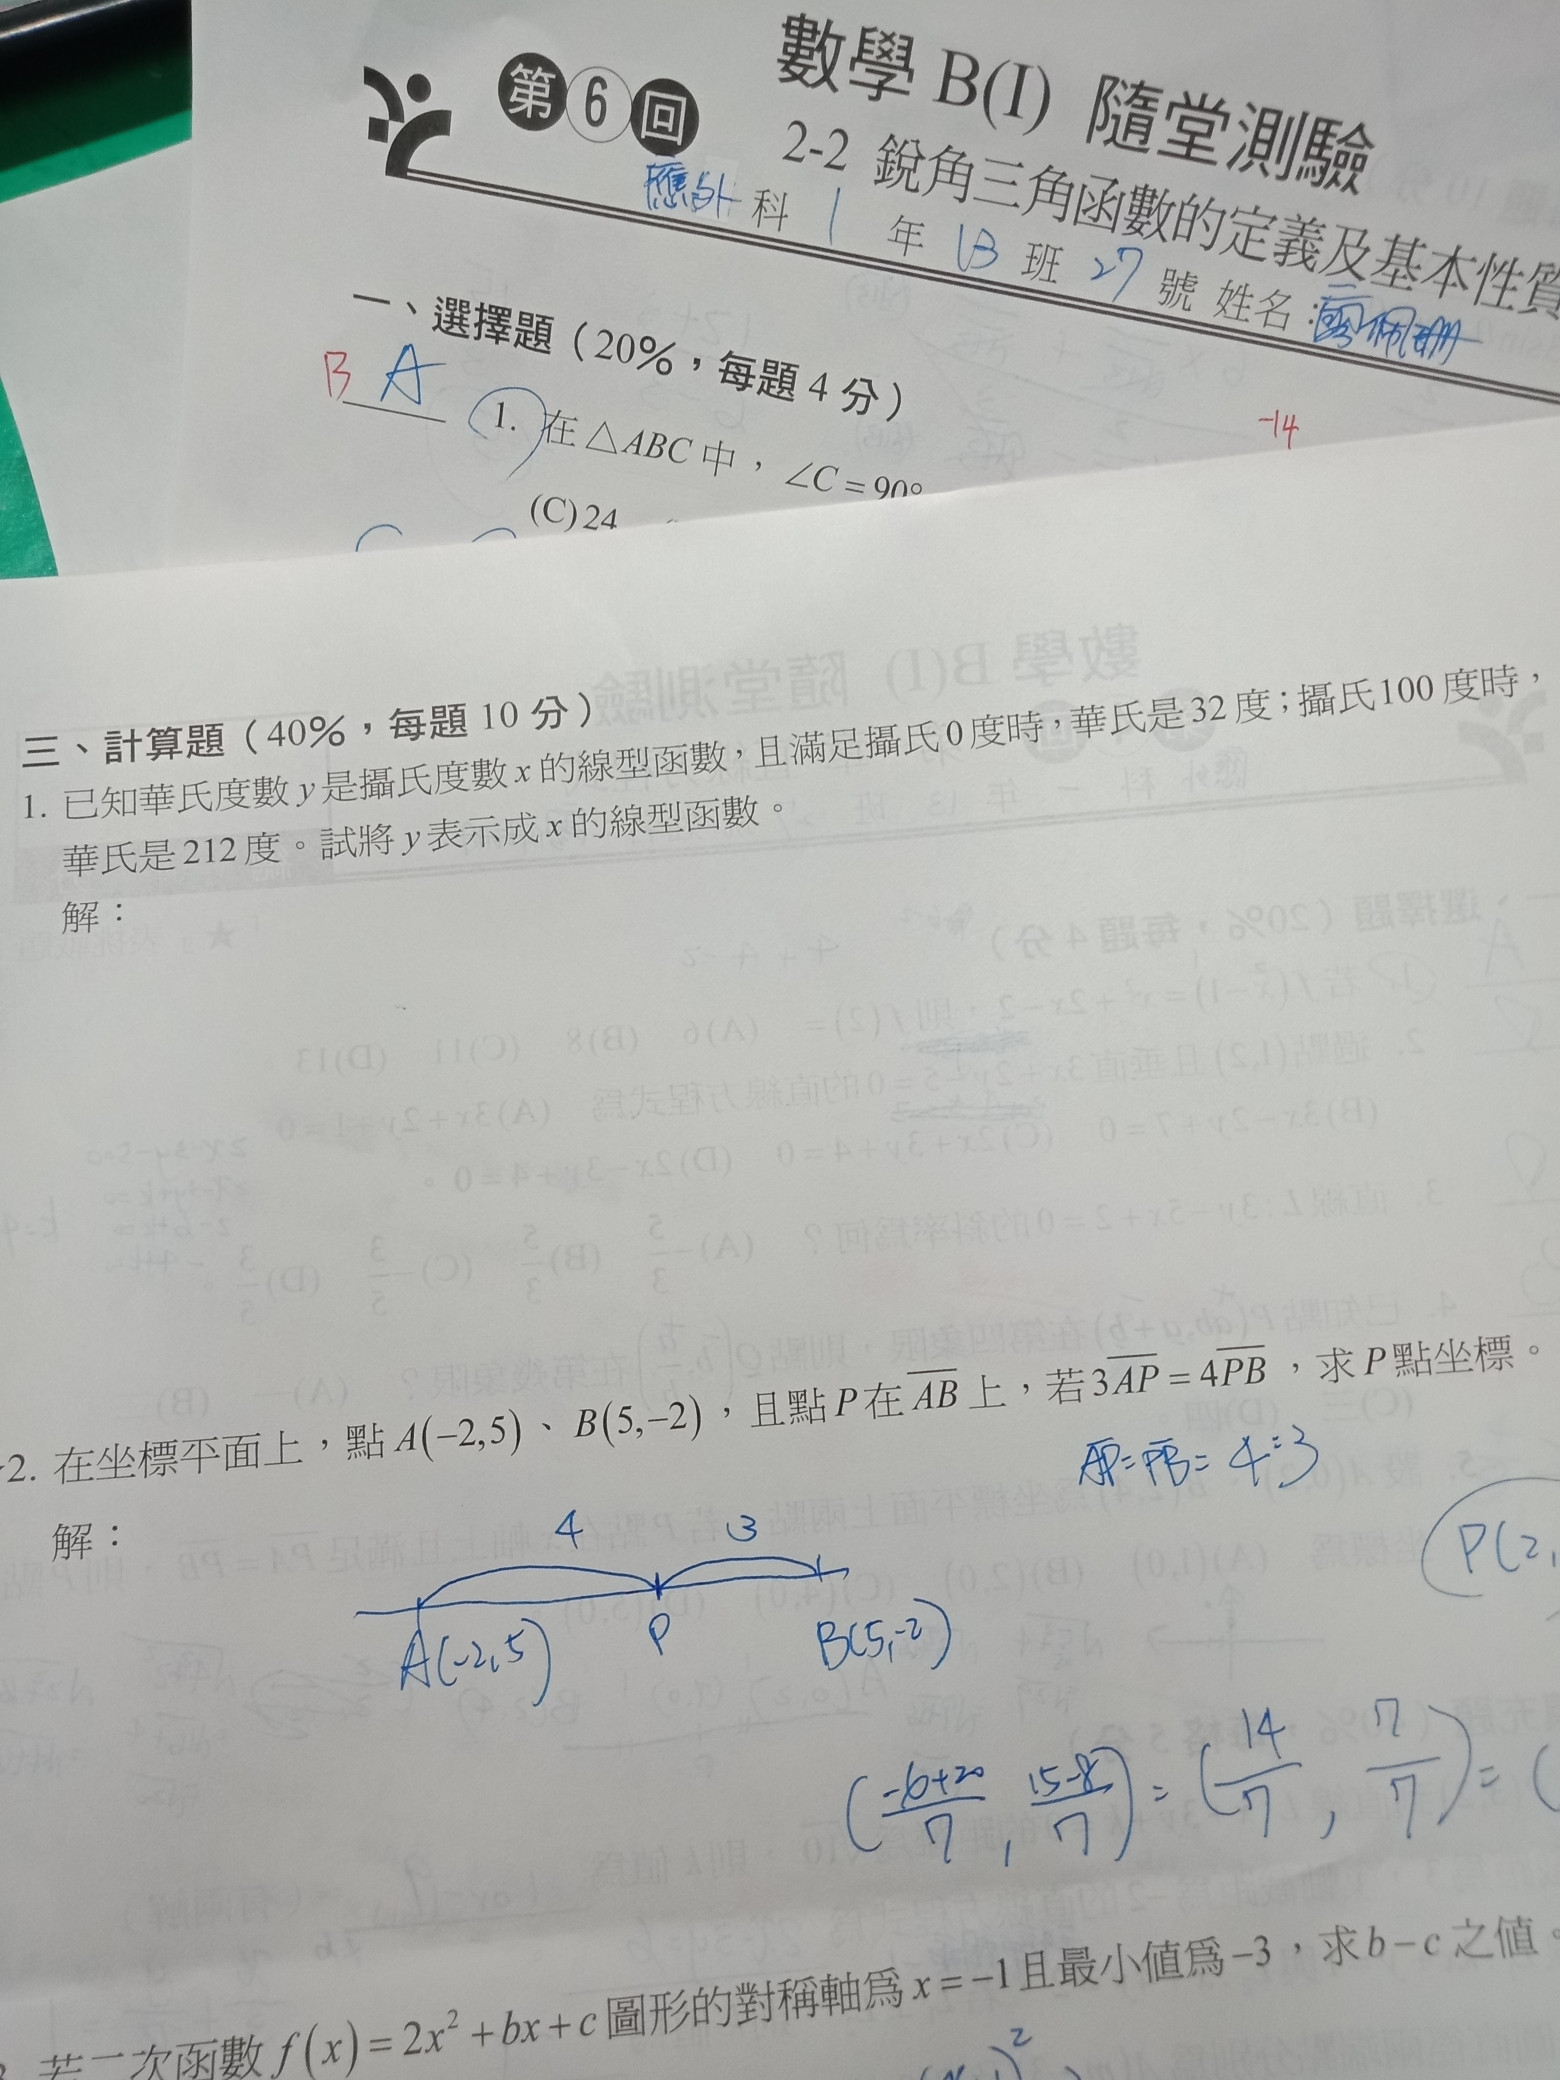 數學 B(I) 隨堂測驗
第6回
2-2 銳角三角函數的定義及基本性質
應外 科 1 年 1B 班 27 號 姓名：
一、選擇題（20%，每題 4 分）
B A 1. 在△ABC中，∠C=90°
-14
(C)24
三、計算題（40%，每題 10 分）
1. 已知華氏度數 y 是攝氏度數 x 的線型函數，且滿足攝氏0度時，華氏是32度；攝氏100度時，
華氏是212度。試將 y 表示成 x 的線型函數。
解：
2. 在坐標平面上，點 A(−2,5)、B(5,−2)，且點 P 在 AB 上，若3AP=4PB，求 P 點坐標。
AP:PB=4:3
解：
4 3
P(2,
A(-2,5) P B(5,-2)
(-6+20/7, 15-8/7)=(14/7, 7/7)=(
若二次函數 f(x)=2x²+bx+c 圖形的對稱軸為 x=−1且最小值為−3，求b−c 之值。